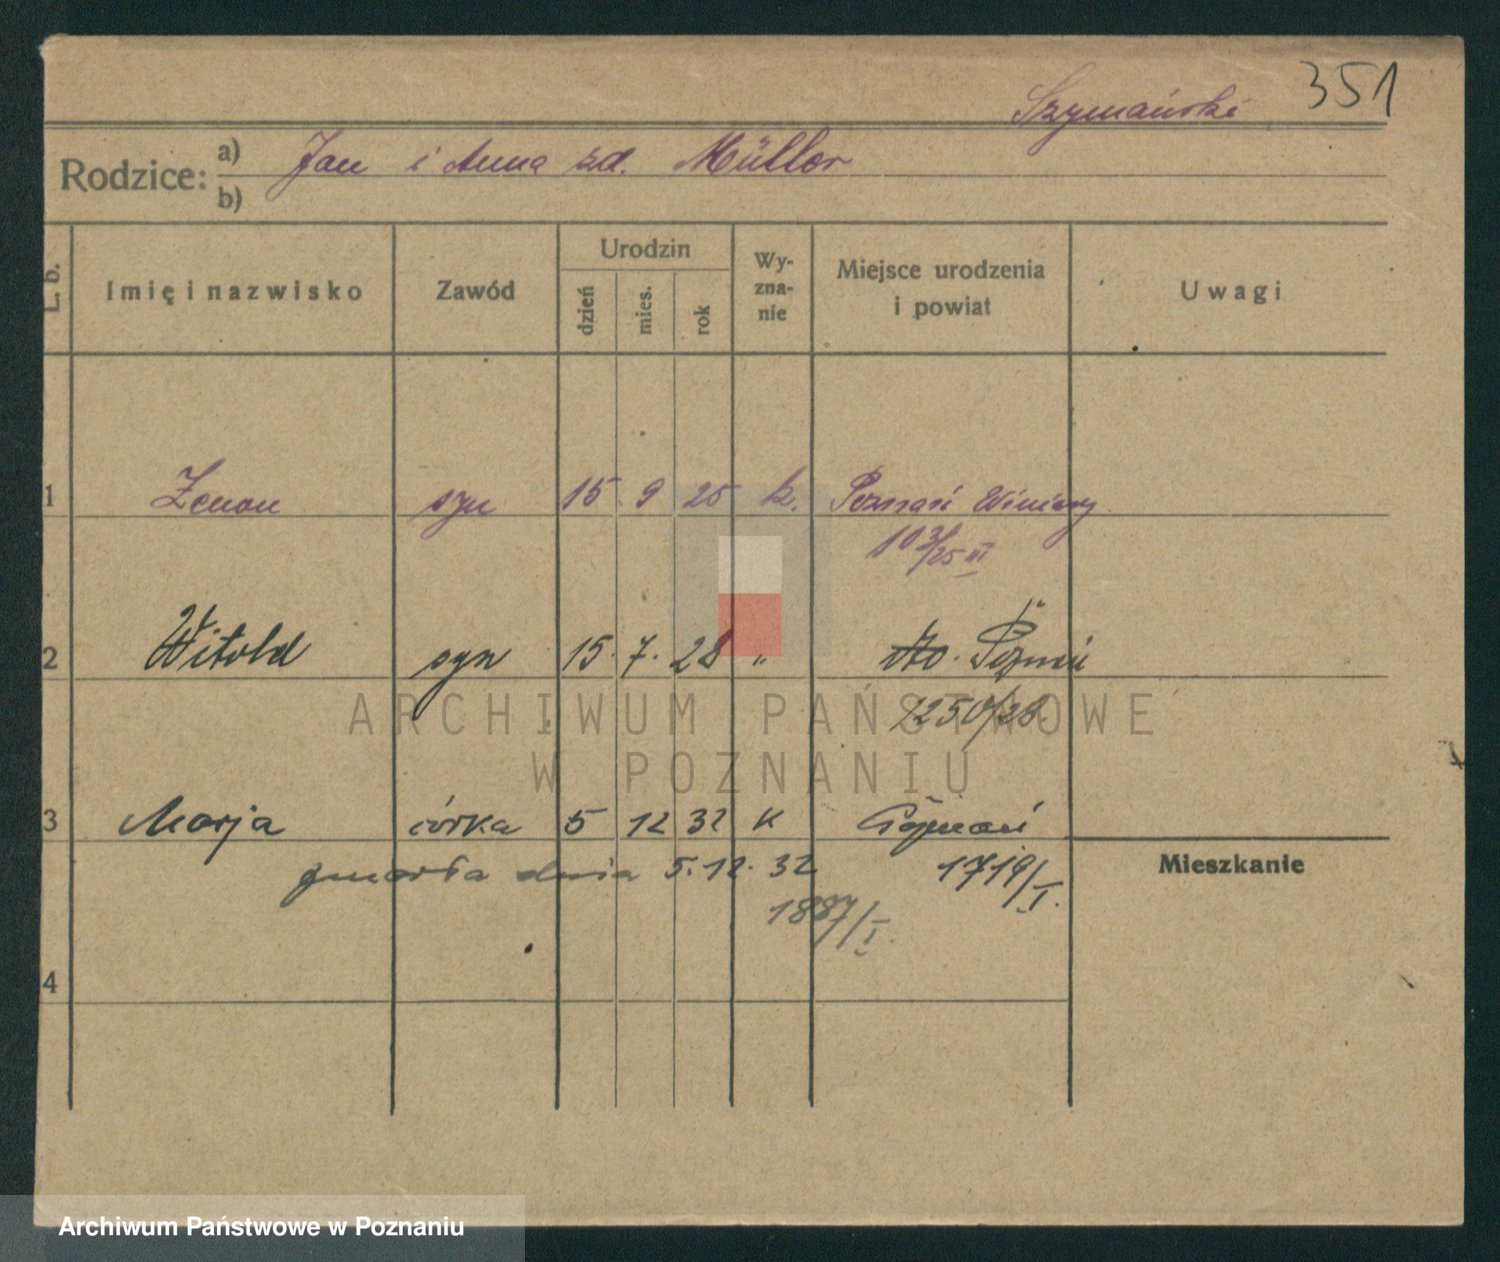 351
Szymański
Rodzice: a) Jan i Anna zd. Müller
b)
L. b. Imię i nazwisko Zawód Urodzin dzień mies. rok Wyzna-nie Miejsce urodzenia i powiat Uwagi
1 Zenon syn 15 9 25 k. Poznań Winiary
103/25 III
2 Witold syn 15. 7. 28 " Poznań
1250/28.
3 Marja córka 5 12 32 K Poznań
Mieszkanie
zmarła dnia 5.12.32 1719/I.
1887/I.
4
ARCHIWUM PAŃSTWOWE
W POZNANIU
Archiwum Państwowe w Poznaniu